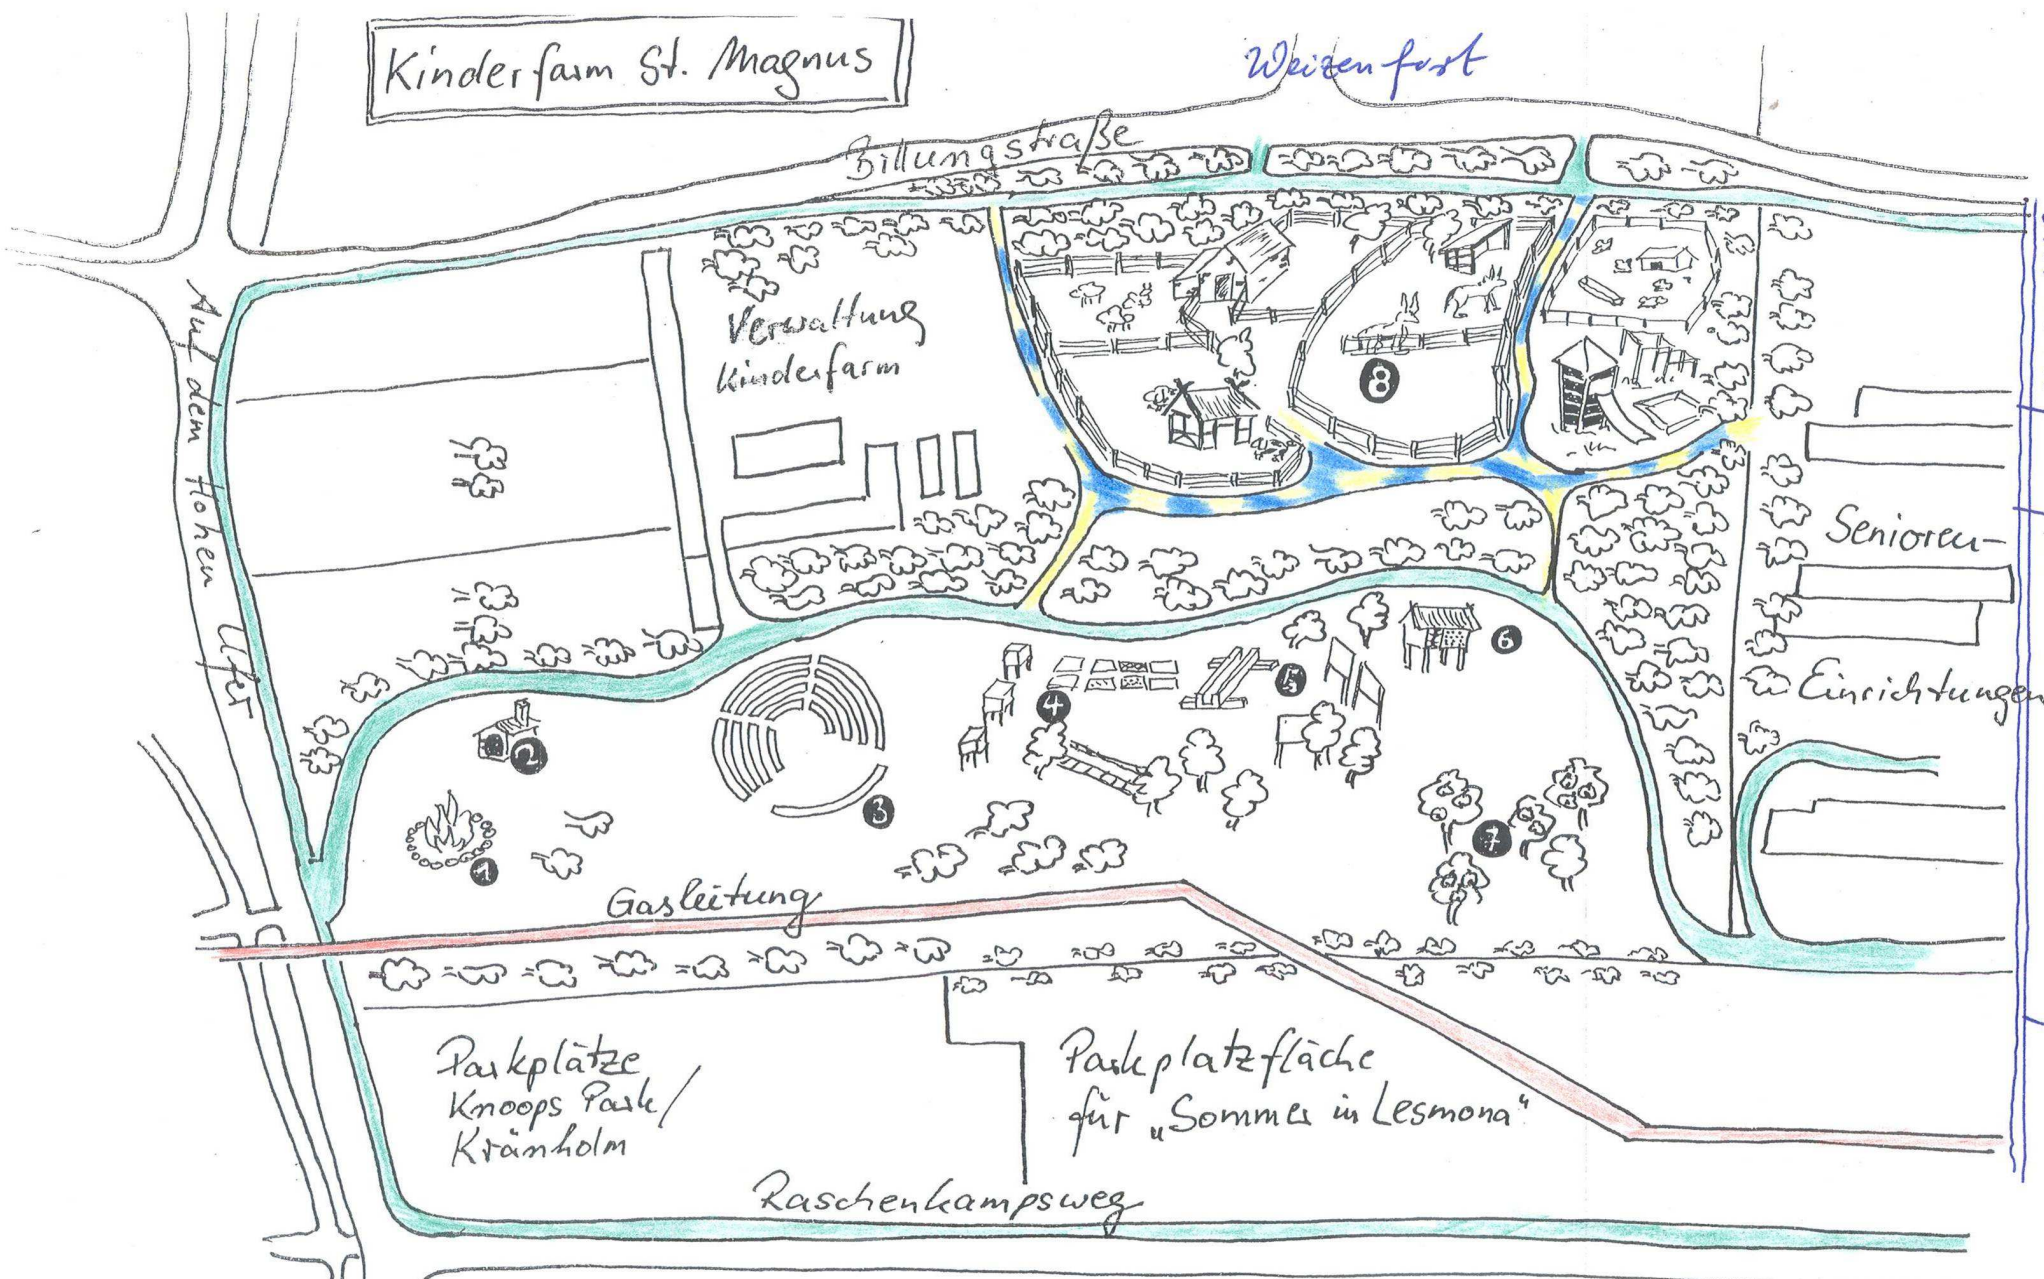 Kinderfarm St. Magnus
Weizenfurt
Billungstraße
Auf dem Hohen Ufer
Verwaltung
Kinderfarm
8
Senioren-
Einrichtungen
6
5
4
2
3
7
1
Gasleitung
Parkplätze
Knoops Park/
Kränholm
Parkplatzfläche
für „Sommer in Lesmona“
Raschenkampsweg